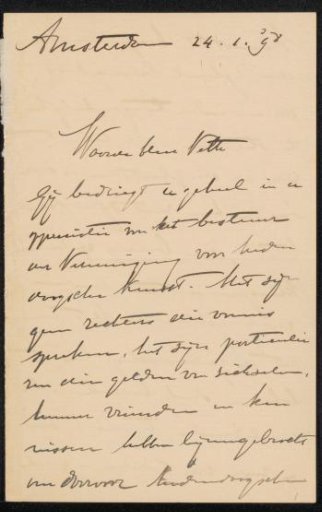 Amsterdam 24.1.98
Waarde heer Veth
Gij bedriegt u geheel in u
oppositie van het bestuur
der Vereeniging van heden
daagsche Kunst. Het zijn
geen rechters die vonnis
spreken, het zijn particulie
ren die gelden van zichzelven,
hunne vrienden en ken
nissen hebben bijeengebracht
om daarvoor hedendaagsche